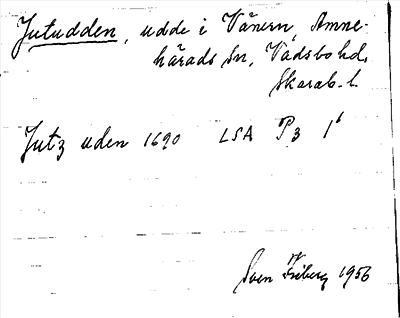 Jutudden, udde i Vänern, Amne-
härads sn, Vadsbo hd,
Skarab. l.
Jutz uden 1690 LSA P3 1
Sven Friberg 1956